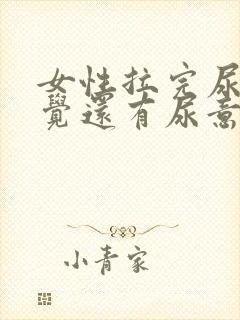 女性拉完尿
覺還有尿意
小青家